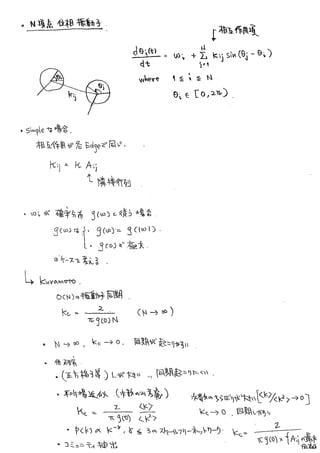 ・N 頂点 位相 振動子
相互作用項
dθi(t)/dt = ωi + Σ_{j=1}^{N} Kij sin(θj - θi)
where 1 ≤ i ≤ N
θi ∈ [0, 2π)
θi
θj
Kij
・simpleな場合.
相互作用が全Edgeで同じ.
Kij = K Aij
↑ 隣接行列
・ωi が 確率分布 g(ω) に従う場合
g(ω)は { ・g(ω) = g(|ω|)
・g(0)が 極大.
のケースを考える.
↳ Kuramoto.
O(N)の振動子 同期
Kc = 2 / πg(0)N (N→∞)
・N→∞, Kc→0, 同期が起こりやすい
・他 研究
・(正方格子等) Lが大きい, 同期起こりにくい.
・平均場近似 (次数のみ考慮)
Kc = 2/πg(0) <K>/<K²>
次数のゆらぎが大きい [<K>/<K²> → 0]
Kc → 0. 同期しやすい
・P(k) ∝ K^-γ, γ ≤ 3 のスケールフリーネットワーク.
Kc = 2 / πg(0) × {Aijの最大固有値
・コミュニティ抽出